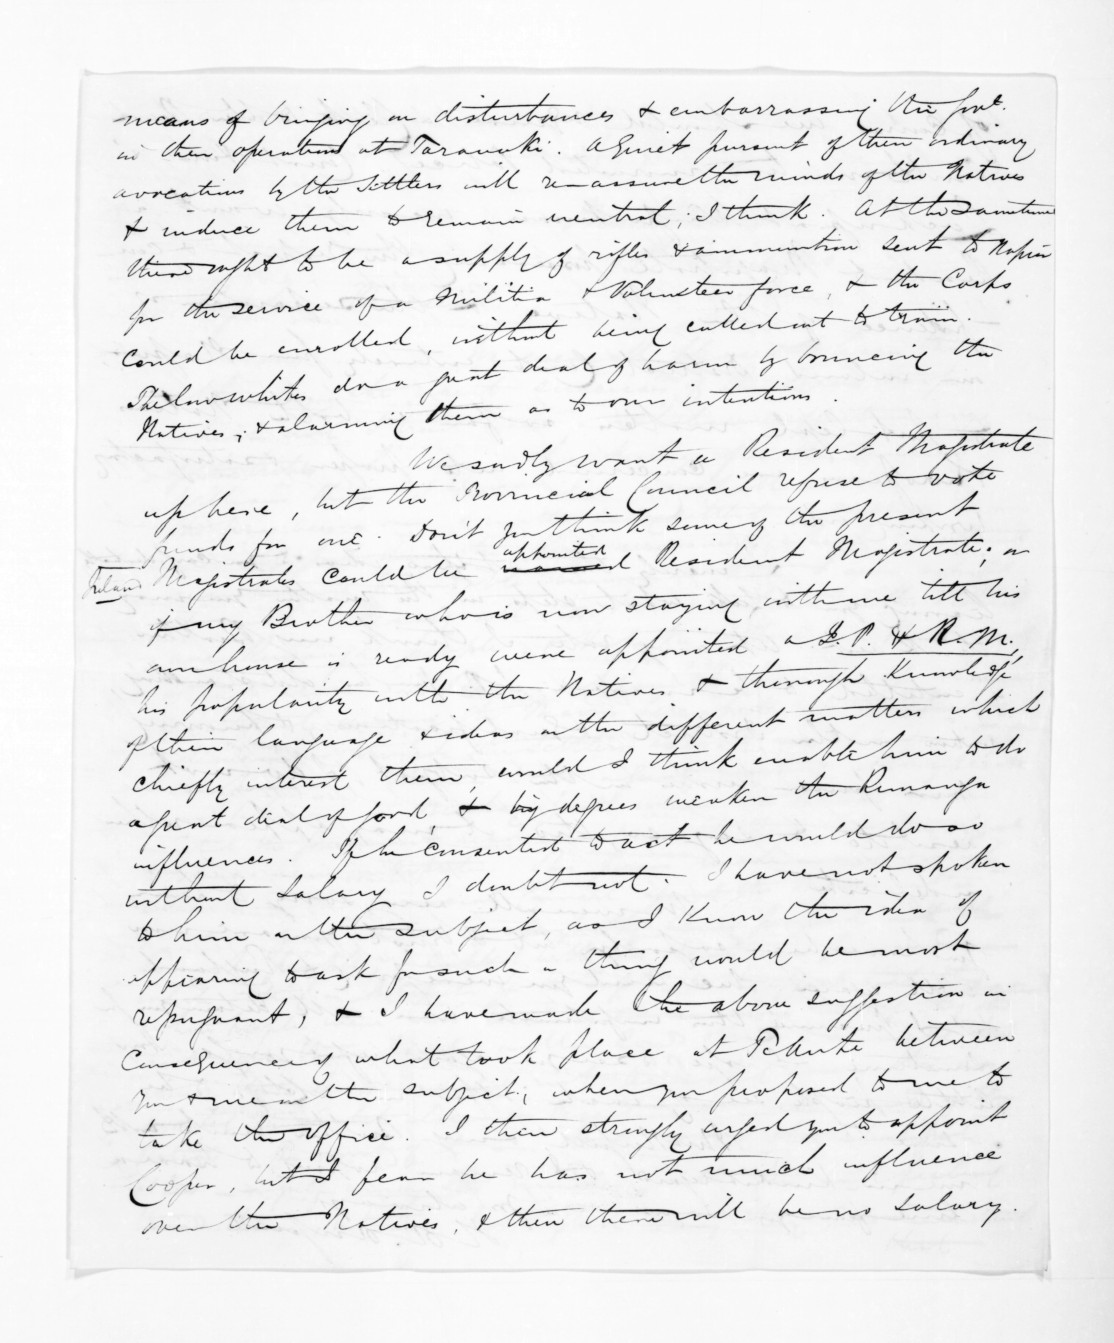 means of bringing on disturbances & embarrassing the Govt.
in their operations at Taranaki. A quiet pursuit of their ordinary
avocations by the Settlers will re-assure the minds of the Natives
& induce them to remain neutral, I think. At the same time
there ought to be a supply of rifles & ammunition sent to Napier
for the service of a Militia & Volunteer force, & the Corps
could be enrolled, without being called out to train.
The low whites do a great deal of harm by bouncing the
Natives, & alarming them as to our intentions.
We sadly want a Resident Magistrate
up here, but the Provincial Council refuse to vote
funds for one. Don't you think some of the present
appointed
Magistrates could be named Resident Magistrate; or
if my Brother who is now staying with me till his
own house is ready were appointed a J. P. & R. M.,
his popularity with the Natives & thorough Knowledge
of their language & ideas on the different matters which
chiefly interest them, would I think enable him to do
a great deal of good, & by degrees weaken the Runanga
influences. If he consented to act he would do so
without Salary I doubt not. I have not spoken
to him on the subject, as I Know the idea of
appearing to ask for such a thing would be most
repugnant, & I have made the above suggestion in
consequence of what took place at Te Aute between
you & me on the subject, when you proposed to me to
take the office. I then strongly urged you to appoint
Cooper, but I fear he has not much influence
over the Natives, & then there will be no Salary.